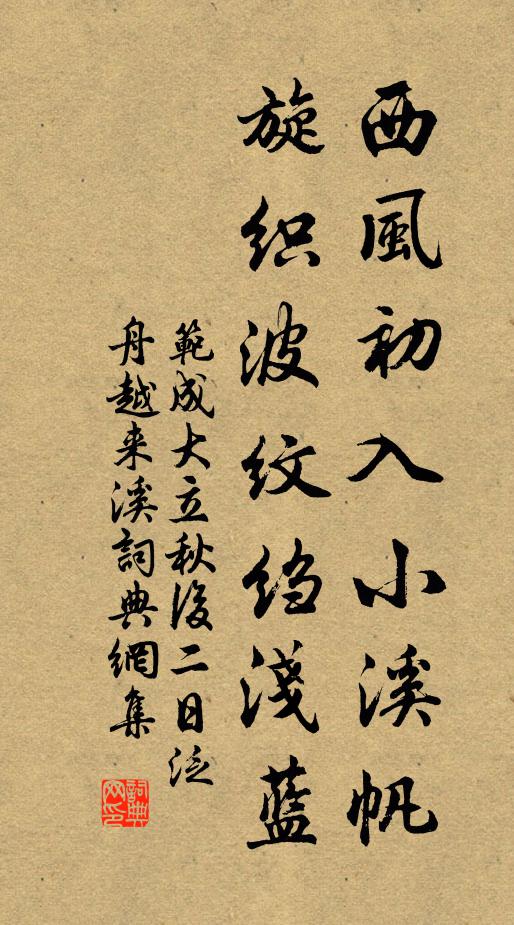 西風初入小溪帆
旋织波纹绉淺藍
範成大立秋後二日泛
舟越来溪詞典網集
詞典
网印